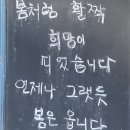 봄처럼 활짝
희망이
피었습니다
언제나 그랬듯
봄은 옵니다